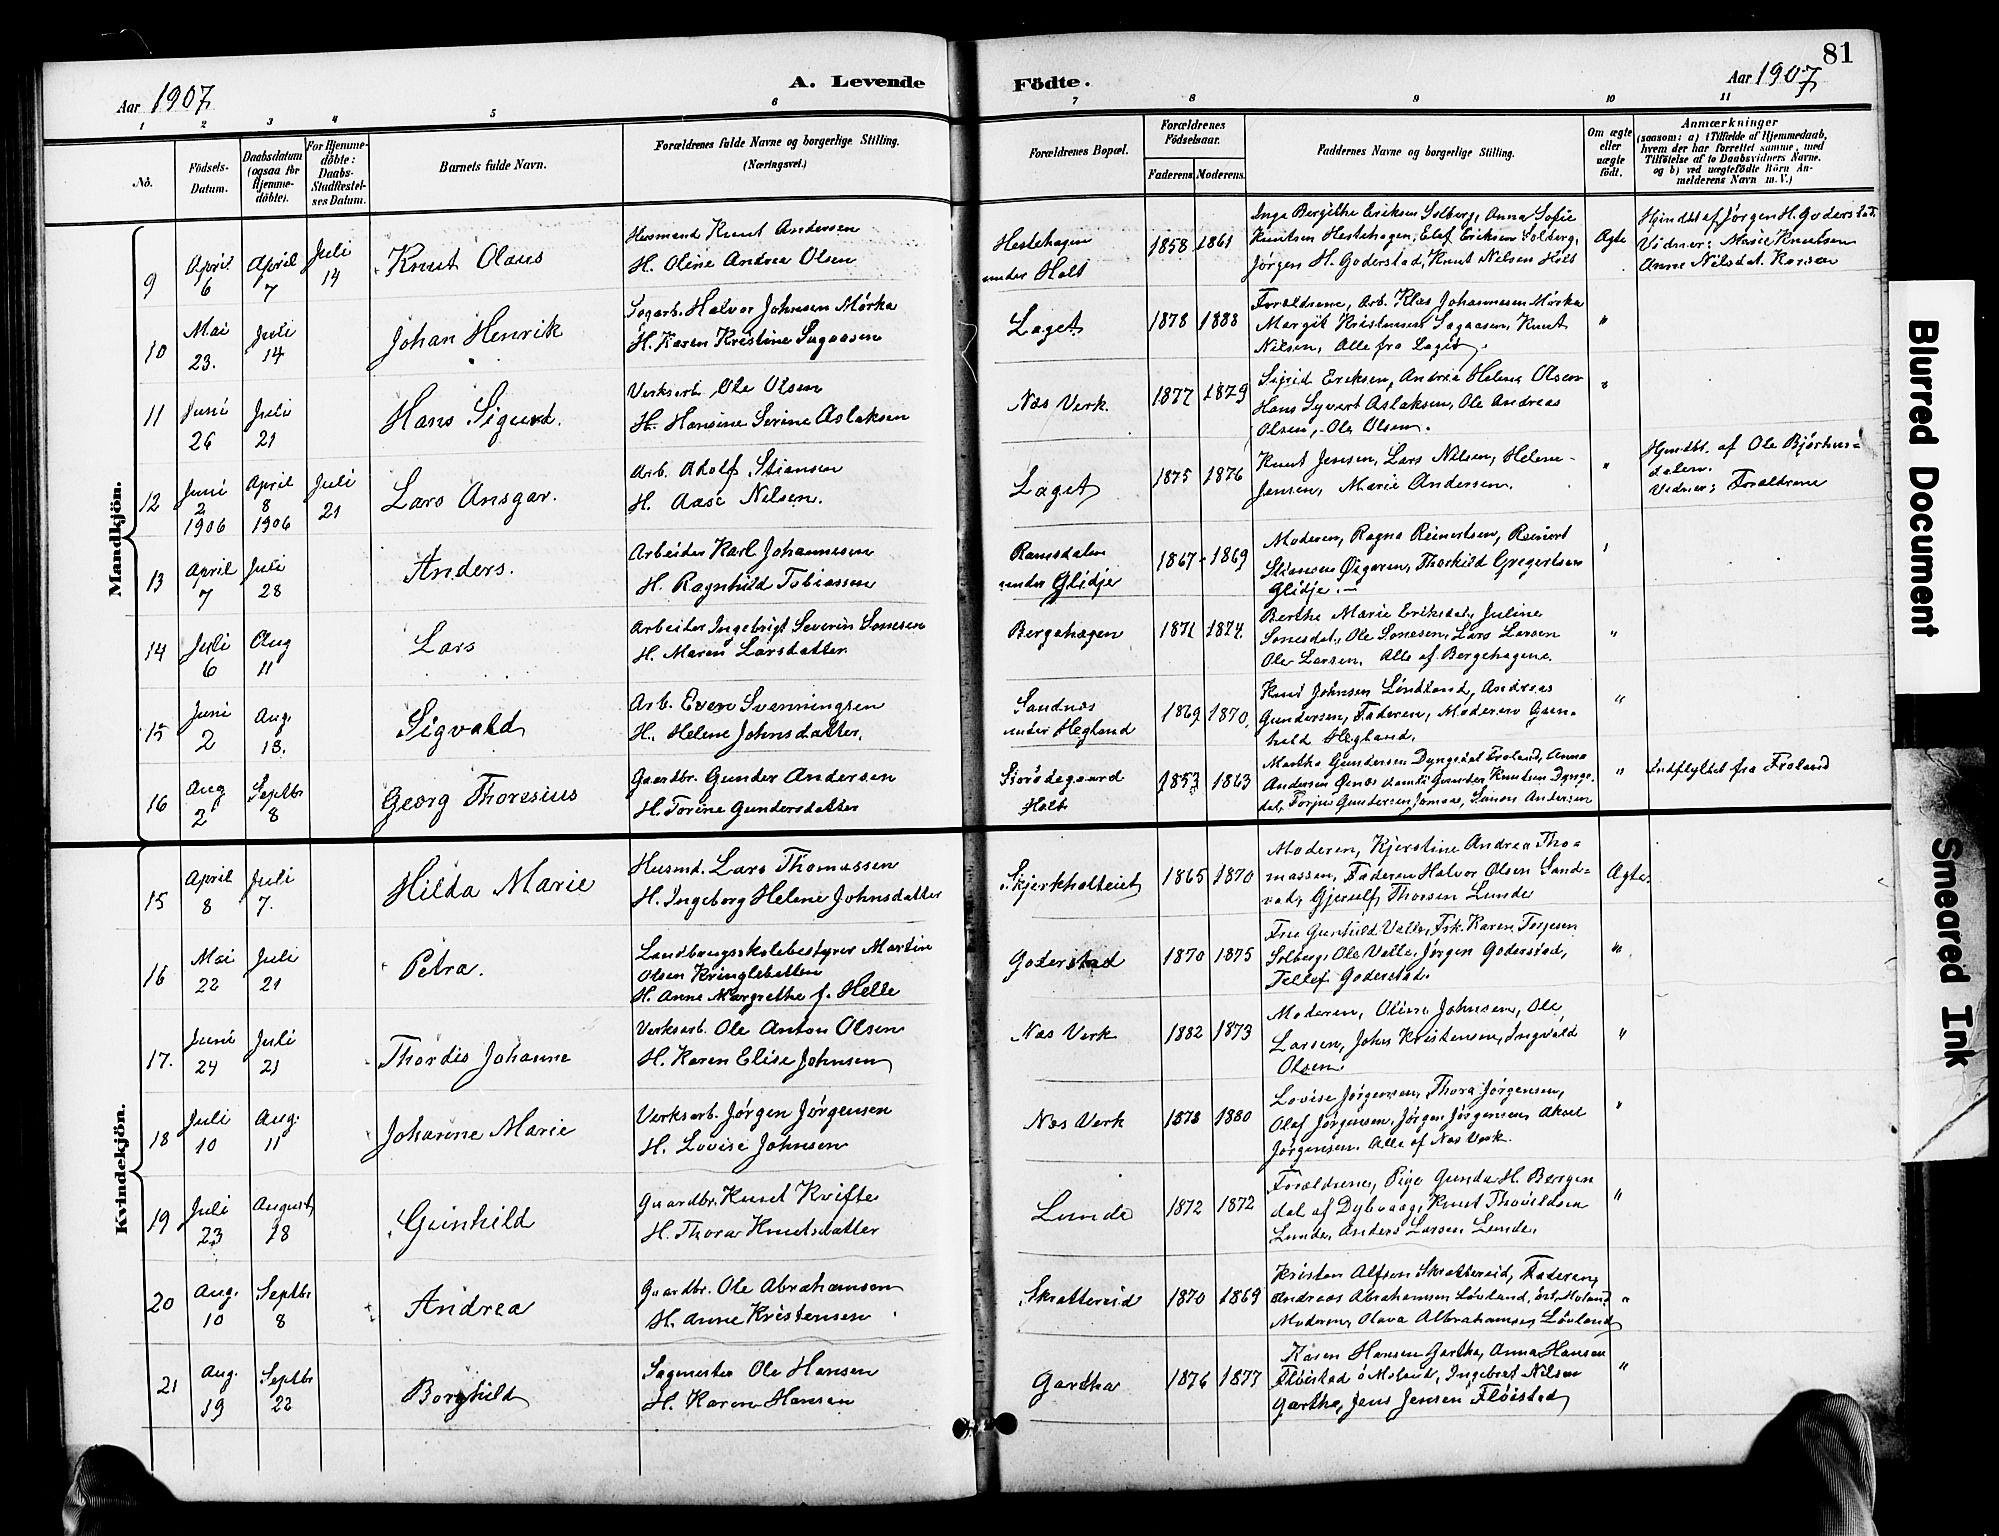 81
Aar 1907
A. Levende
Födte.
Aar 1907
1 2 3 4 5 6 7 8 9 10 11
No.
Födsels-Datum.
Daabsdatum (ogsaa for Hjemmedöbte).
For Hjemmedöbte: Daabs-Stadfæstelses Datum.
Barnets fulde Navn.
Forældrenes fulde Navne og borgerlige Stilling.
(Næringsvei.)
Forældrenes Bopæl.
Forældrenes Födselsaar.
Faderens. Moderens.
Faddernes Navne og borgerlige Stilling.
Om ægte eller uægte födt.
Anmærkninger
(saasom: a) i Tilfælde af Hjemmedaab,
hvem der har forrettet samme, med
Tilföielse af to Daabsvidners Navne.
og b) ved uægtefödte Börn Anmelderens Navn m. V.)
Mandkjön.
9 April 6 April 7 Juli 14 Knut Olaus
Husmand Knut Andersen
H. Oline Andrea Olsen
Hestehagen
under Holt
1858 1861
Inga Bergithe Eriksen Solberg, Anna Sofie
Knutsen Hestehagen, Elef Eriksen Solberg,
Jørgen H. Goderstad, Knut Nilsen Holt
Ægte
Hjmdbt af Jørgen H. Goderstad.
Vidner: Marie Knutsen
Anne Nilsdat.
10 Mai 23. Juli 14 Johan Henrik
Sagarb. Halvor Johnsen Mørka
H. Karen Kristine Sagaasen
Laget
1878 1888
Forældrene, Arb. Klas Johannesen Mørka
Margit Kristensen Sagaasen, Knut
Nilsen, Alle fra Laget.
"
11 Juni 26 Juli 21 Hans Sigurd.
Verksarb. Ole Olsen
H. Hansine Serine Aslaksen
Næs Verk.
1877 1879
Sigrid Eriksen, Andrea Helene Olsen
Hans Syvert Aslaksen, Ole Andreas
Olsen, Ole Olsen.
"
12 Juni 2 1906 April 8 1906 Juli 21 Lars Ansgar.
Arb. Adolf Stiansen
H. Aase Nilsen.
Laget
1875 1876
Knut Jensen, Lars Nilsen, Helene
Jensen, Marie Andersen.
"
Hjmdbt. af Ole Bjørhus=
dalen.
Vidner: Forældrene
13 April 7 Juli 28 Anders.
Arbeider Karl Johannesen
H. Ragnhild Tobiassen
Ramsdalen
under Glidje
1867 1869
Moderen, Ragna Reinertsen, Reinert
Stiansen Øigaren, Thorkild Gregertsen
Glidje.
14 Juli 6 Aug 11 Lars
Arbeider Ingebrigt Severin Sønesen
H. Maren Larsdatter
Bergehagen
1871 1874.
Berthe Marie Eriksdat, Juline
Sønesdat., Ole Sønesen, Lars Larsen
Ole Larsen. Alle af Bergehagene.
"
15 Juni 2 Aug. 18. Sigvald
Arb. Even Svenningsen
H. Helene Johnsdatter.
Sandnæs
under Hegland
1869 1870.
Knut Johnsen Lindland, Andreas
Gundersen, Faderen, Moderen Gun-
hild Hegland.
"
16 Aug 2 Septbr 8 Georg Thoresius
Gaardbr. Gunder Andersen
H. Torine Gundersdatter
Holt
1853 1863
Martha Gundersen Dyngedal Froland, Anna
Andersen Øinæs Gunder Knutsen Dynge-
dal, Torjus Gundersen Jomaas, Simon Andersen
"
Indflyttet fra Froland
Kvindekjön.
15 April 8 Juli 7. Hilda Marie
Husmd. Lars Thomassen
H. Ingeborg Helene Johnsdatter
Skjerkholteiet
1865 1870
Moderen, Kjerstine Andrea Tho=
massen, Faderen Halvor Olsen Sand=
vad, Gjerulf Thorsen Lunde
Ægte.
16 Mai 22 Juli 21 Petra.
Landbrugsskolebestyrer Martin
Olsen Kringlebotten
H. Anne Margrethe f. Helle
Goderstad
1870 1875
Frue Gunhild Valle, Frk. Karen Torjesen
Solberg, Ole Valle, Jørgen Goderstad,
Tellef Goderstad.
"
17. Juni 24 Juli 21 Thordis Johanne
Verksarb. Ole Anton Olsen
H. Karen Elise Johnsen
Næs Verk
1882 1873
Moderen, Oline Johnsen, Ole
Larsen, John Kristensen, Ingvald
Olsen
"
18 Juli 10 Aug. 11 Johanne Marie
Verksarb. Jørgen Jørgensen
H. Lovise Johnsen
Næs Verk
1878 1880
Lovise Jørgensen, Thora Jørgensen,
Olaf Jørgensen, Jørgen Jørgensen, Aksel
Jørgensen. Alle af Næs Verk.
"
19 Juli 23 August 18 Gunhild
Gaardbr. Knut Kvifte
H. Thora Knutsdatter
Lunde
1872 1872
Forældrene, Pige Gunda H. Bergen
dal af Dybvaag, Knut Thovildsen
Lunde, Anders Larsen Lunde.
"
20 Aug. 10 Septbr 8 Andrea
Gaardbr. Ole Abrahamsen
H. Anne Kristensen
Skrattereid
1870 1869
Kristen Alfsen Skrattereid, Faderen,
Andreas Abrahamsen Løvland, øst. Moland
Moderen, Olava Albrahamsen Løvland
"
21 Aug. 19 Septbr 22 Borghild
Sagmester Ole Hansen
H. Karen Hansen
Gartha
1876 1877
Karen Hansen Gartha, Anna Hansen
Fløistad ø Moland, Ingebret Nilsen
Gartha, Jens Jensen Fløistad
"
Blurred Document
Smeared Ink